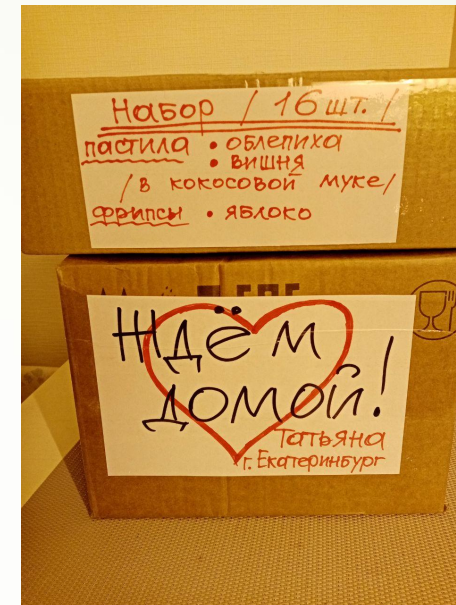 Набор / 16 шт. /
пастила • облепиха
• вишня
/ в кокосовой муке /
фрипсы • яблоко
Ждём
домой!
Татьяна
г. Екатеринбург